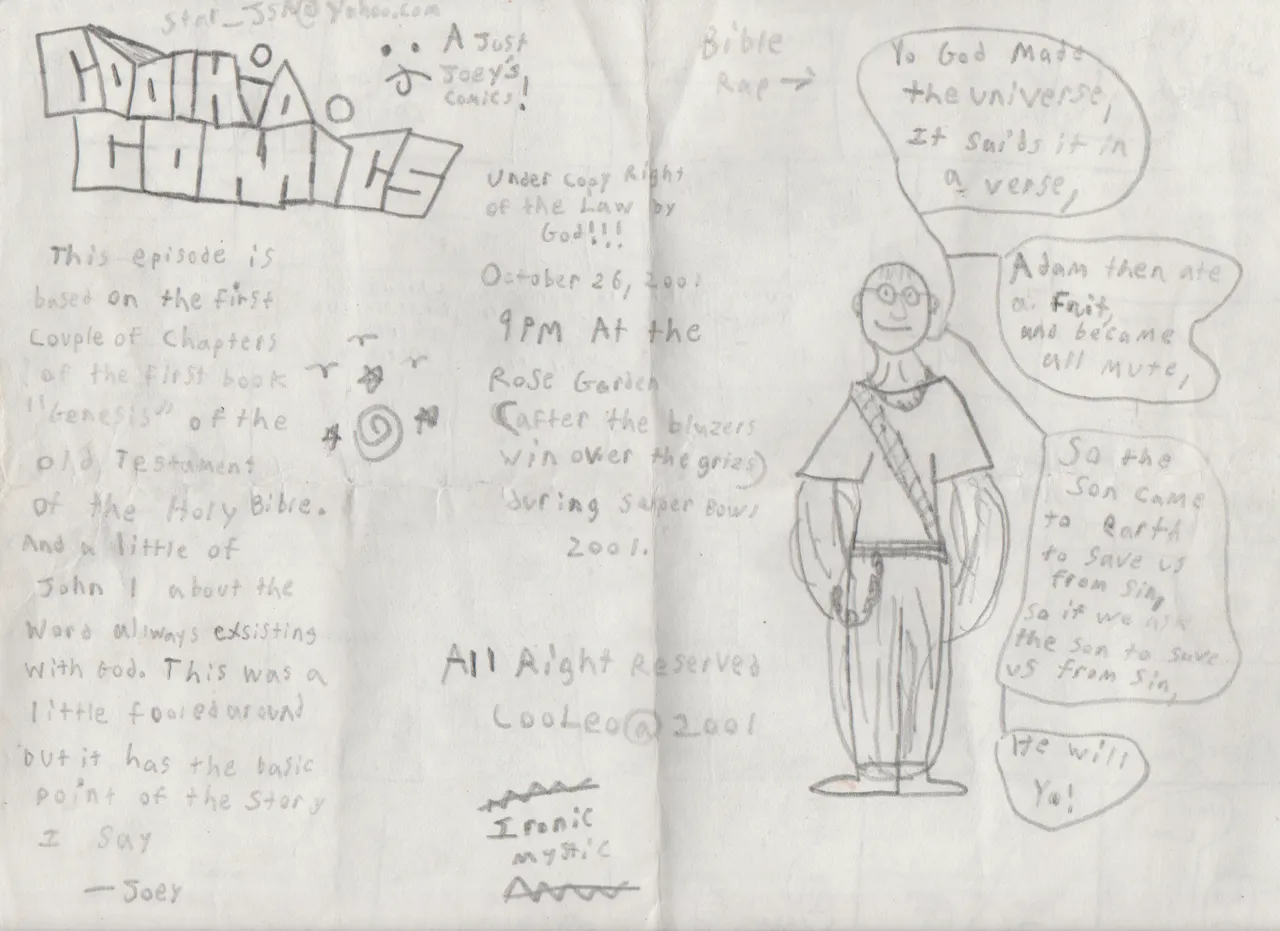 star_JSN@yahoo.com
COMICS
A Just
Joey's,
Comics!
This episode is
based on the first
Couple of Chapters
of the first book
"Genesis" of the
old Testament
of the Holy Bible.
And a little of
John 1 about the
Word allways exsisting
with God. This was a
little fooled around
but it has the basic
point of the Story
I Say
—Joey
Under Copy Right
of the Law by
God!!!
October 26, 2001
9PM At the
Rose Garden
(after the blazers
win over the grizs)
During Super Bowl
2001.
All Right Reserved
CooLeo@2001
Ironic
mystic
Bible
Rap →
Yo God Made
the universe,
It saids it in
a verse,
Adam then ate
a Fruit,
and became
all mute,
So the
Son came
to earth
to save us
from sin,
so if we ask
the son to save
us from sin,
He will
Yo!